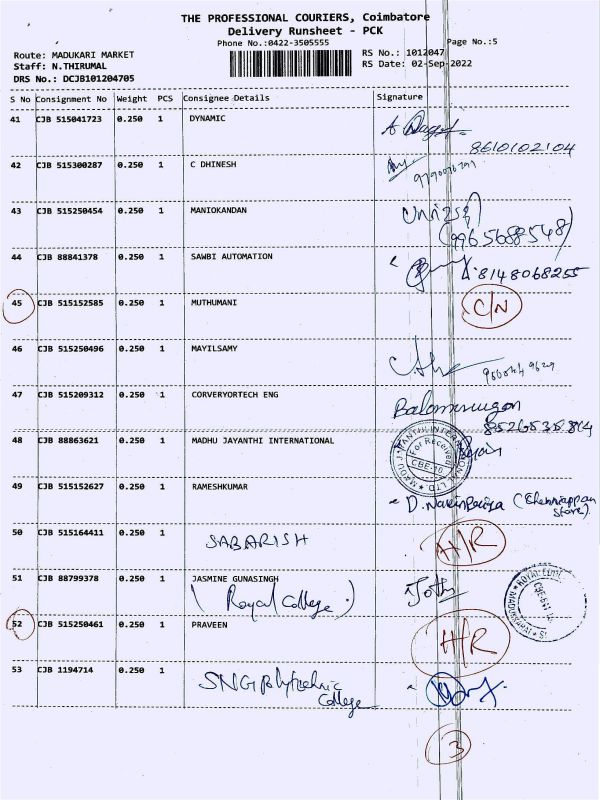 THE PROFESSIONAL COURIERS, Coimbatore
Delivery Runsheet - PCK
Phone No.:0422-3505555
Page No.:5
Route: MADUKARI MARKET
RS No.: 1012047
Staff: N.THIRUMAL
RS Date: 02-Sep-2022
DRS No.: DCJB101204705
S No Consignment No Weight PCS Consignee Details Signature
41 CJB 515041723 0.250 1 DYNAMIC
8610102104
42 CJB 515300287 0.250 1 C DHINESH
43 CJB 515250454 0.250 1 MANIOKANDAN
(9965688548)
44 CJB 88841378 0.250 1 SAWBI AUTOMATION
8148068255
45 CJB 515152585 0.250 1 MUTHUMANI C/N
46 CJB 515250496 0.250 1 MAYILSAMY
47 CJB 515209312 0.250 1 CORVERYORTECH ENG
Balamurugan
48 CJB 88863621 0.250 1 MADHU JAYANTHI INTERNATIONAL
For Received
CBE-10
49 CJB 515152627 0.250 1 RAMESHKUMAR
(Chenniappan
Store)
50 CJB 515164411 0.250 1 SABARISH H/R
51 CJB 88799378 0.250 1 JASMINE GUNASINGH
(Royal College) Jothi
52 CJB 515250461 0.250 1 PRAVEEN H/R
53 CJB 1194714 0.250 1 SNG Polytechnic
College
3